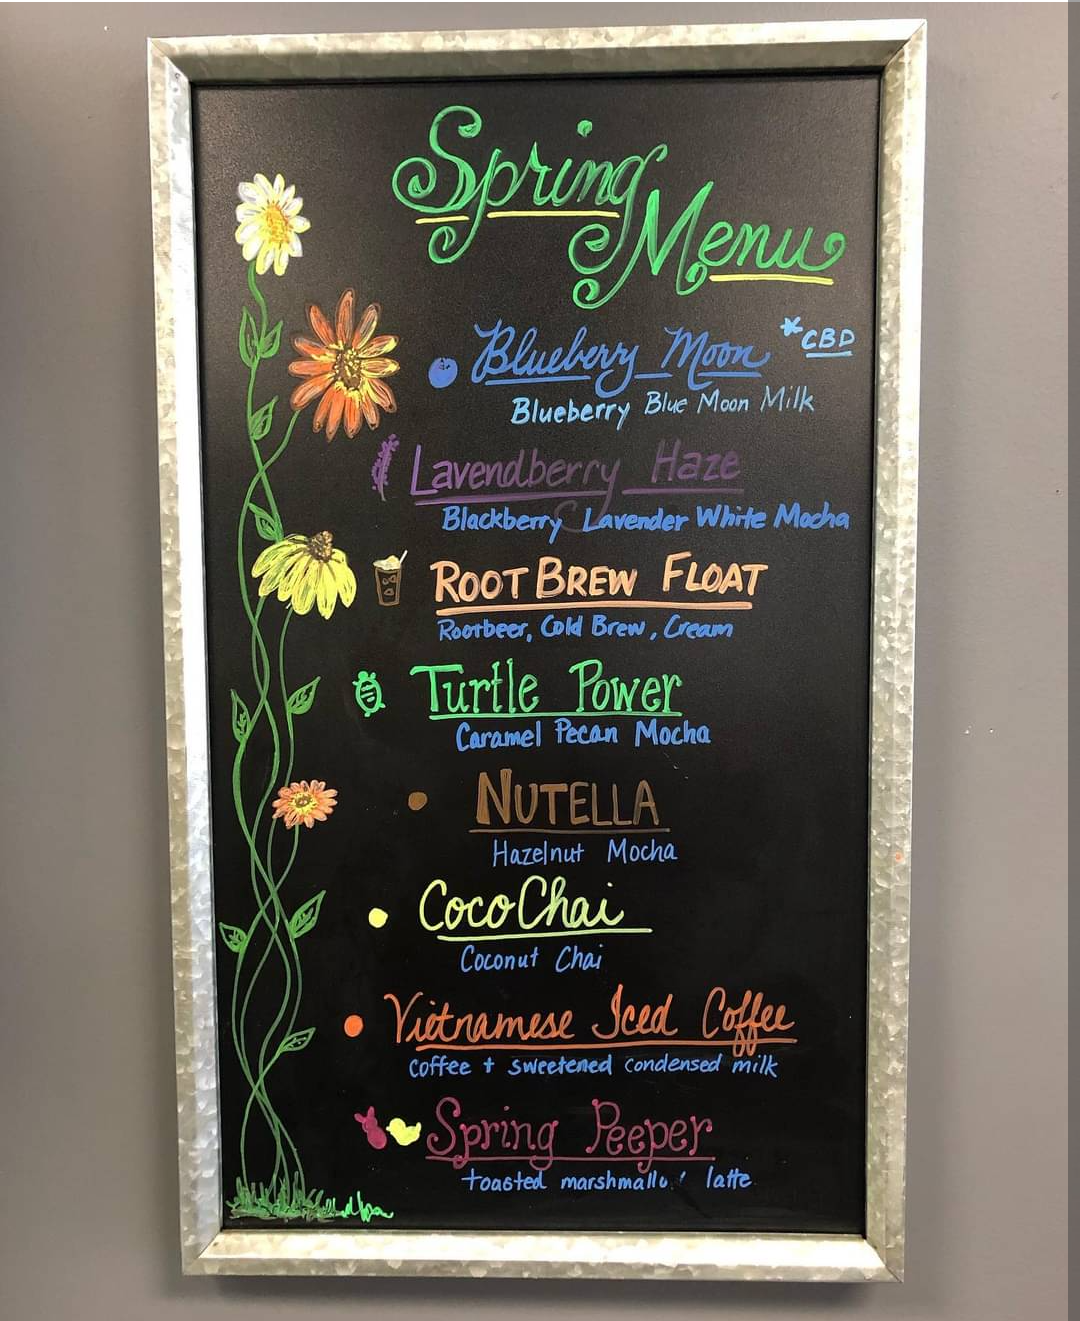 Spring
Menu
Blueberry Moon *CBD
Blueberry Blue Moon Milk
Lavendberry Haze
Blackberry Lavender White Mocha
ROOT BREW FLOAT
Rootbeer, Cold Brew, Cream
Turtle Power
Caramel Pecan Mocha
NUTELLA
Hazelnut Mocha
Coco Chai
Coconut Chai
Vietnamese Iced Coffee
coffee + sweetened condensed milk
Spring Peeper
toasted latte